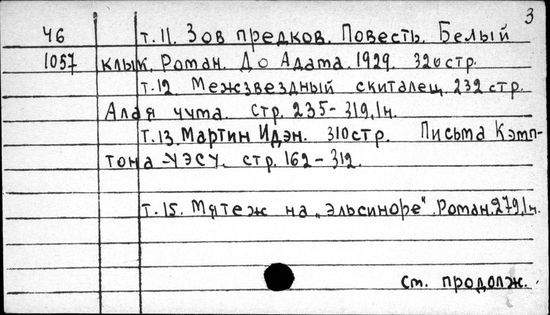 3
46 т.11. Зов предков. Повесть. Белый
1057 клык. Роман. До Адама. 1929. 320 стр.
т.12 Межзвездный скиталец. 232 стр.
Алая чума. стр. 235-319,1н.
т.13. Мартин Идэн. 310 стр. Письма Кэмп-
тона-Уэсу. стр. 162-312.
т.15. Мятеж на „Эльсиноре". Роман. 279,1н.
см. продолж.